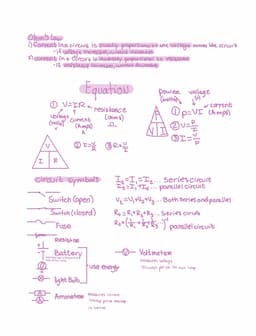 Ohm's law
1) Current in a circuit is directly proportional to the voltage across the circuit
-if voltage increases, current increases
2) current in a circuit is inversely proportional to resistance
-if resistance increases, current decreases
Equation
① V=IR
voltage (volts)
current (Amps)
resistance (ohms) Ω
V
I R
② I=V/R ③ R=V/I
power (watts) voltage
① P=VI current (Amps)
P
V I
② V=P/I
③ I=P/V
Circuit symbols
Switch (open)
Switch (closed)
Fuse
Resistor
Battery
light Bulb
use energy
Ammeter
Measures current
in series
I₁=I₂=I₃... Series circuit
parallel circuit
Both series and parallel
R₁+R₂+R₃... Series circuit
parallel circuit
Voltmeter
measures voltage